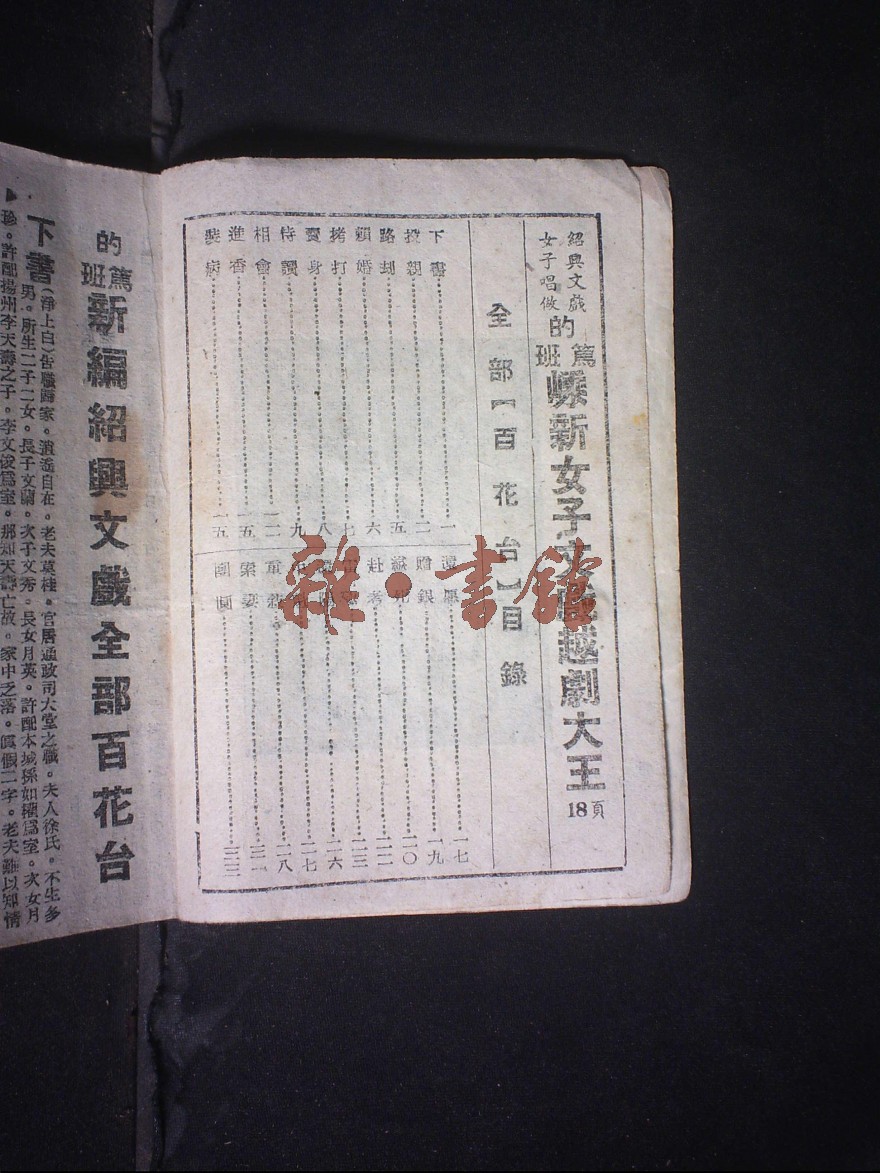 紹興文戲
女子唱做
的篤班
嵊新女子文戲越劇大王
18頁
全部【百花台】目錄
下書 一
投親 二
路刦 五
賴婚 六
拷打 七
賣身 八
侍讀 九
相會 一二
進香 一五
裝病 一五
還願 一七
贈銀 一九
二〇
赴考 二二
二三
二六
二七
二八
索妻 三一
團圓 三三
雜·書館
的篤班
新編紹興文戲全部百花台
下書
(淨上白)告職歸家。逍遙自在。老夫莫桂。官居通政司大堂之職。夫人徐氏。不生多
男。所生二子二女。長子文蘭。次子文秀。長女月英。許配本城孫如權爲室。次女月
珍。許配揚州李天壽之子。李文俊爲室。那知天壽亡故。家中乏落。眞假二字。老夫難以知情